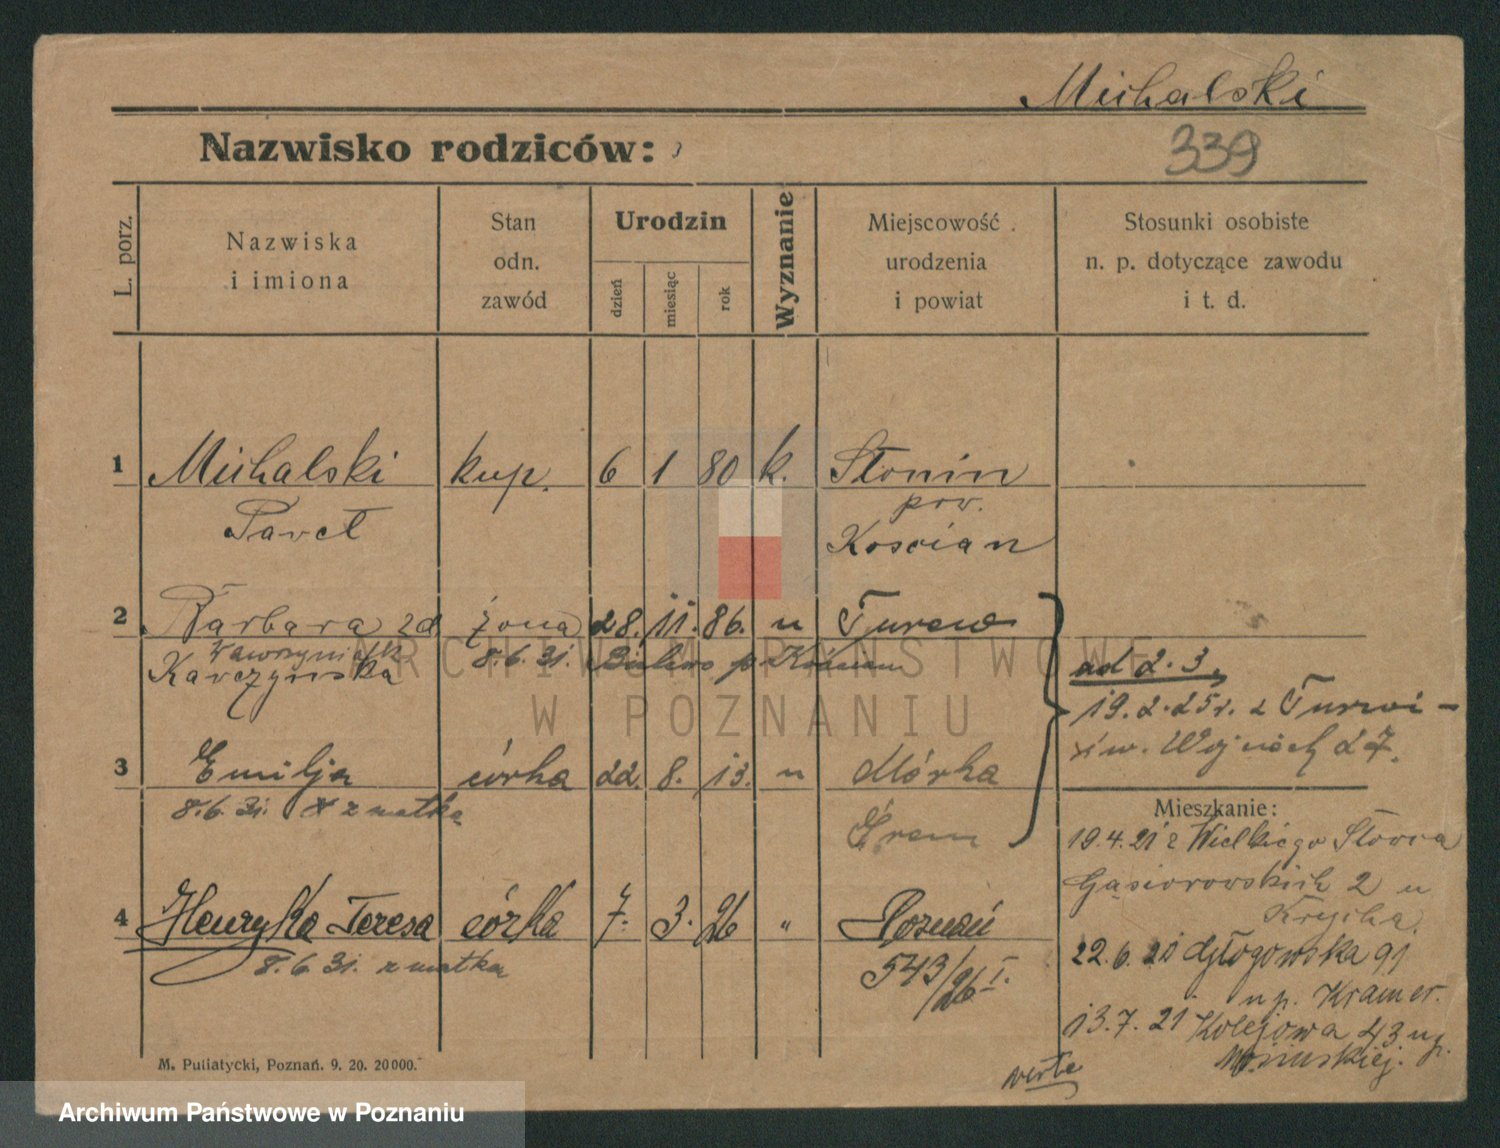 Michalski
Nazwisko rodziców:
339
L. porz.
Nazwiska
i imiona
Stan
odn.
zawód
Urodzin
dzień
miesiąc
rok
Wyznanie
Miejscowość
urodzenia
i powiat
Stosunki osobiste
n. p. dotyczące zawodu
i t. d.
1 Michalski kup. 6 1 80 k. Słonin
Paweł pow.
Kościan
2 Barbara zd żona 28. 11. 86. " Turew
Wawrzyniak 8.6.31. p Kościan
Karczyńska
ad 2. 3.
19. 2. 25 r. z Turwi
św. Wojciech 27.
3 Emilja córka 22. 8. 13. " Mórka
8.6.31. z matką
Śrem
Mieszkanie:
19.4.21 z Wielkiego
Gąsiorowskich 2 u
4 Henryka Teresa córka 7. 3. 26 " Poznań
8.6.31. z matką
543/26 I.
22.6.21 Głogowska 91
u p. Kramer.
13.7.21 Kolejowa 43 u p.
verte
M. Putiatycki, Poznań. 9. 20. 20000.
ARCHIWUM PAŃSTWOWE
W POZNANIU
Archiwum Państwowe w Poznaniu